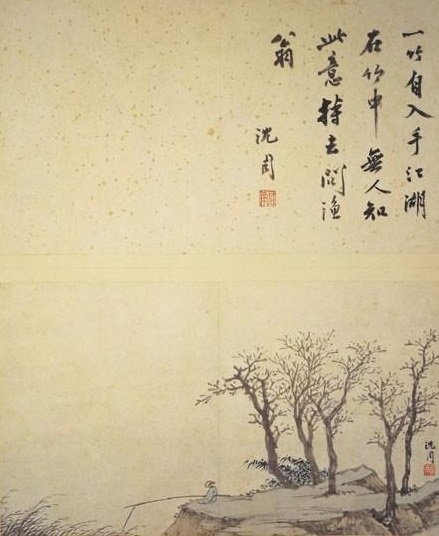 一竹自入手江湖
在竹中無人知
此意去問漁
翁
沈周
沈周